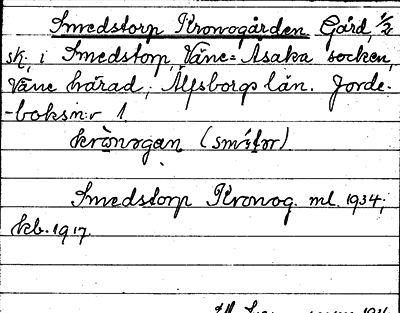 Smedstorp Kronogården Gård, 1/2
sk. i Smedstorp, Väne-Åsaka socken,
Väne härad, Älfsborgs län. Jorde-
-boksn:r 1.
(smístər)
Smedstorp Kronog. ml. 1934;
kb. 1917.